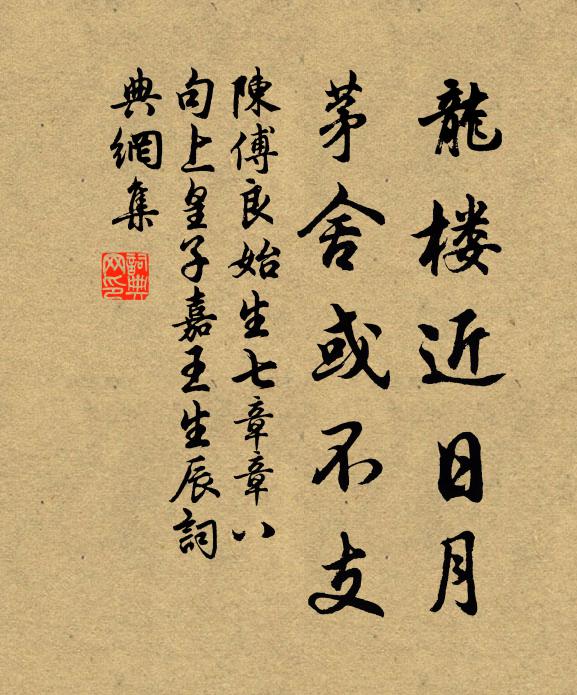 龍楼近日月
茅舍或不支
陳傅良始生七章章八
句上皇子嘉王生辰詞
典網集
詞典
网印